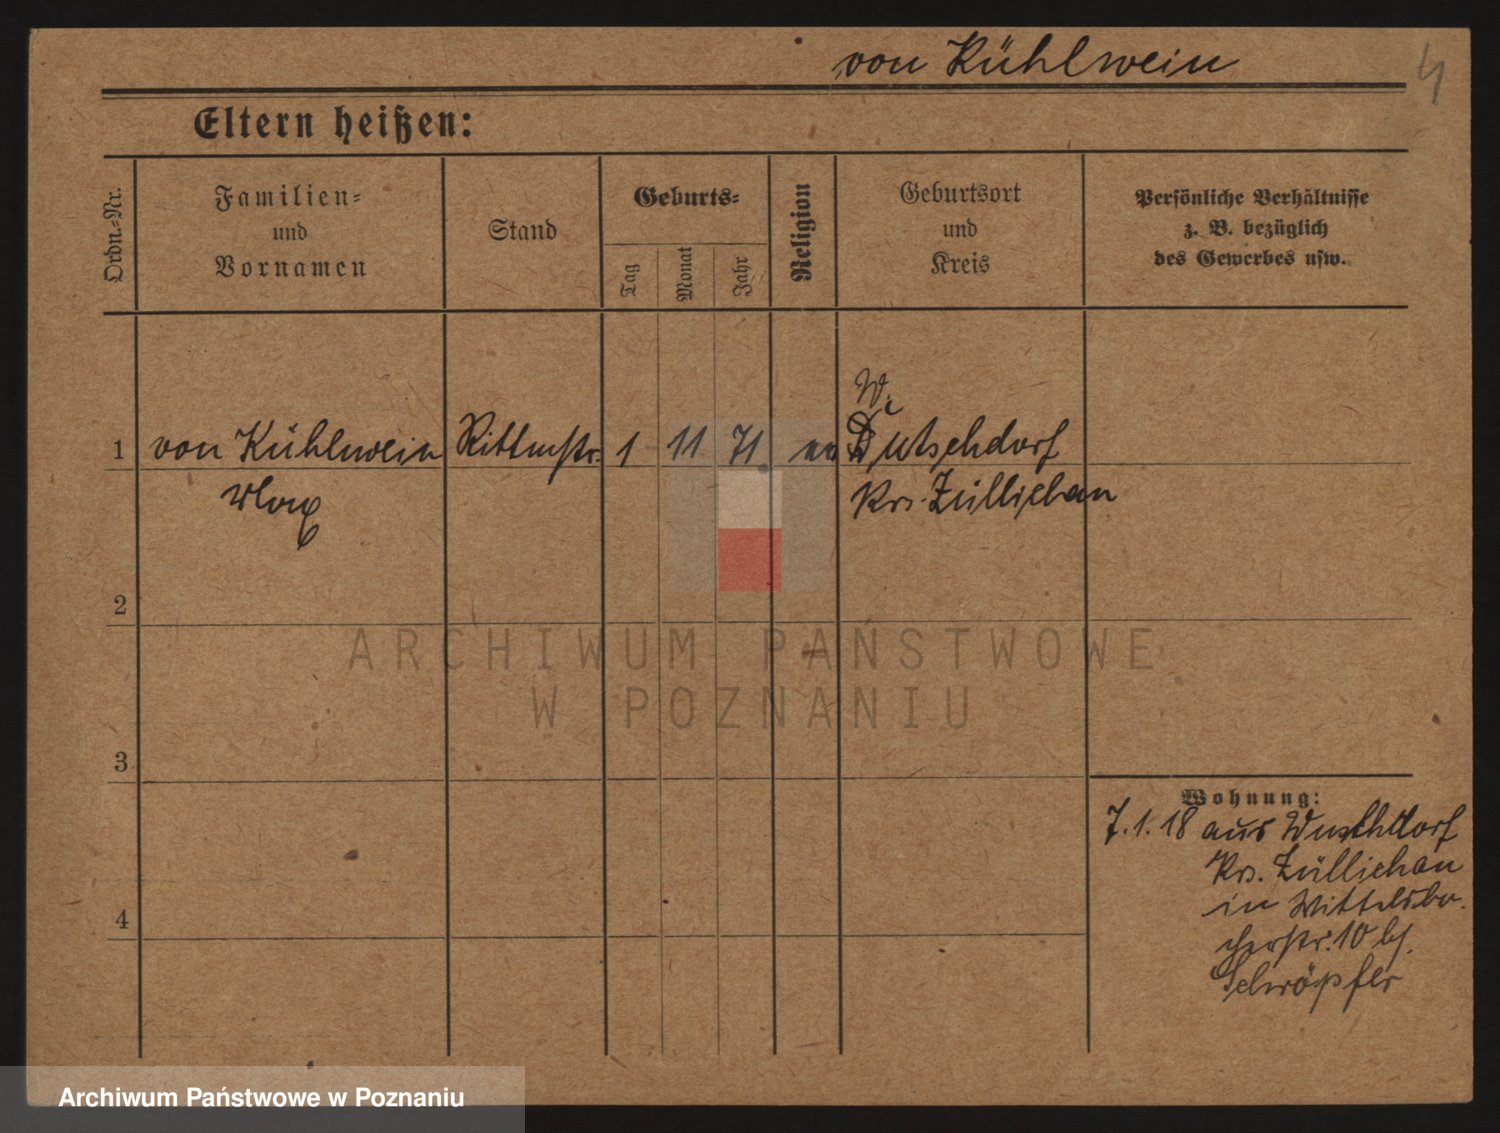 von Kühlwein
4
Eltern heißen:
Ordn.-Nr.
Familien-
und
Vornamen
Stand
Geburts-
Tag
Monat
Jahr
Religion
Geburtsort
und
Kreis
Persönliche Verhältnisse
z. B. bezüglich
des Gewerbes usw.
1
von Kühlwein
Max
Rittmstr.
1
11
71
ev
W.
Dutschdorf
Krs. Züllichau
2
ARCHIWUM PAŃSTWOWE
W POZNANIU
3
Wohnung:
7.1.18 aus
Krs. Züllichau
in Wittelsba-
cherstr. 10 bj.
4
Archiwum Państwowe w Poznaniu